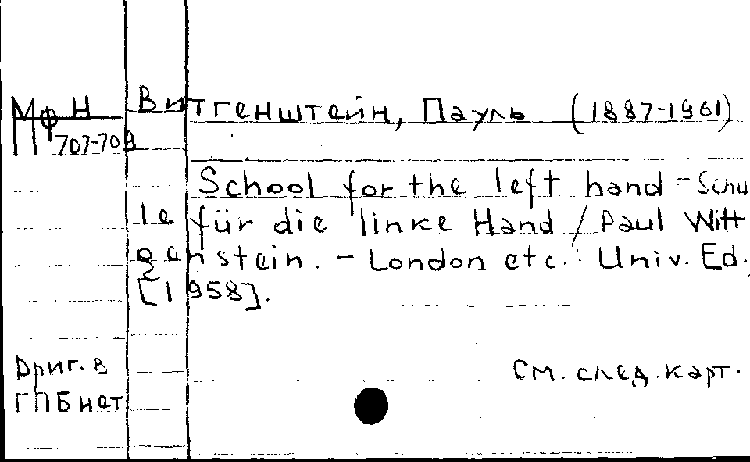 Мф Н Витгенштейн, Пауль (1887-1961)
707-708
School for the left hand - Schu
le für die linke Hand / Paul Witt
genstein. - London etc.: Univ. Ed.,
[1958].
Ориг. в См. след. карт.
ГПБ нет